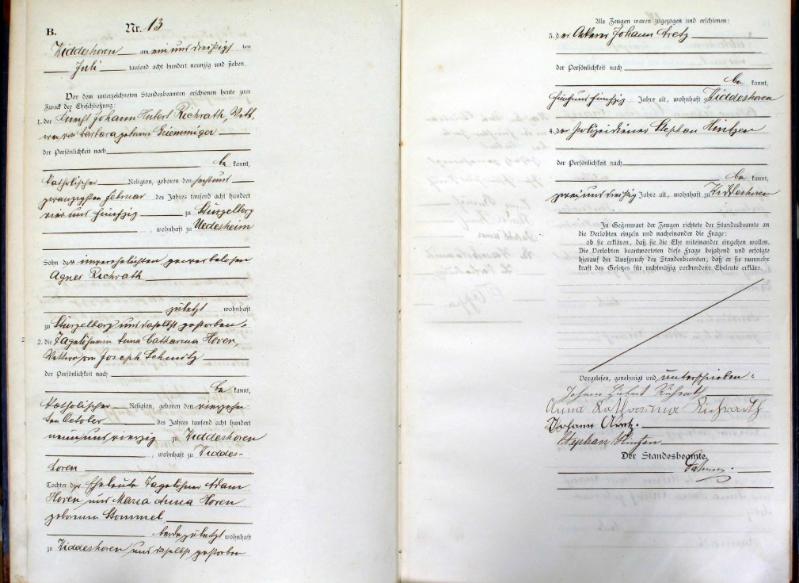 B.
Nr. 13
Hiddeshoven am ein und dreißigsten
Juli tausend acht hundert neunzig und sieben.
Vor dem unterzeichneten Standesbeamten erschienen heute zum
Zweck der Eheschließung:
1. der Johann Hubert Richrath, Witt
wer von Barbara geborene
der Persönlichkeit nach
be kannt,
katholischer Religion, geboren den sechsund
zwanzigsten Februar des Jahres tausend acht hundert
vier und fünfzig zu Stürzelberg
, wohnhaft zu Uedesheim
Sohn der unverehelichten gewerbelosen
Agnes Richrath
zuletzt wohnhaft
zu Stürzelberg und daselbst gestorben.
2. die Tagelöhnerin Anna Catharina Hoven,
Wittwe von Joseph Schmitz
der Persönlichkeit nach
be kannt,
katholischer Religion, geboren den vierzehn
ten October des Jahres tausend acht hundert
neun und vierzig zu Hiddeshoven
, wohnhaft zu Hiddes-
hoven
Tochter der Eheleute Tagelöhner Adam
Hoven und Maria Anna Hoven
geborene Stommel
beide zuletzt wohnhaft
zu Hiddeshoven und daselbst gestorben
Als Zeugen waren zugezogen und erschienen:
3. der Ackerer Johann
der Persönlichkeit nach
be kannt,
fünf und fünfzig Jahre alt, wohnhaft zu Hiddeshoven
4. der Polizeidiener Stephan
der Persönlichkeit nach
be kannt,
zwei und dreißig Jahre alt, wohnhaft zu Hiddeshoven
In Gegenwart der Zeugen richtete der Standesbeamte an
die Verlobten einzeln und nacheinander die Frage:
ob sie erklären, daß sie die Ehe miteinander eingehen wollen.
Die Verlobten beantworteten diese Frage bejahend und erfolgte
hierauf der Ausspruch des Standesbeamten, daß er sie nunmehr
kraft des Gesetzes für rechtmäßig verbundene Eheleute erkläre.
Vorgelesen, genehmigt und unterschrieben:
Johann Hubert Richrath
Anna Katharina Richrath
Johann
Stephan
Der Standesbeamte.